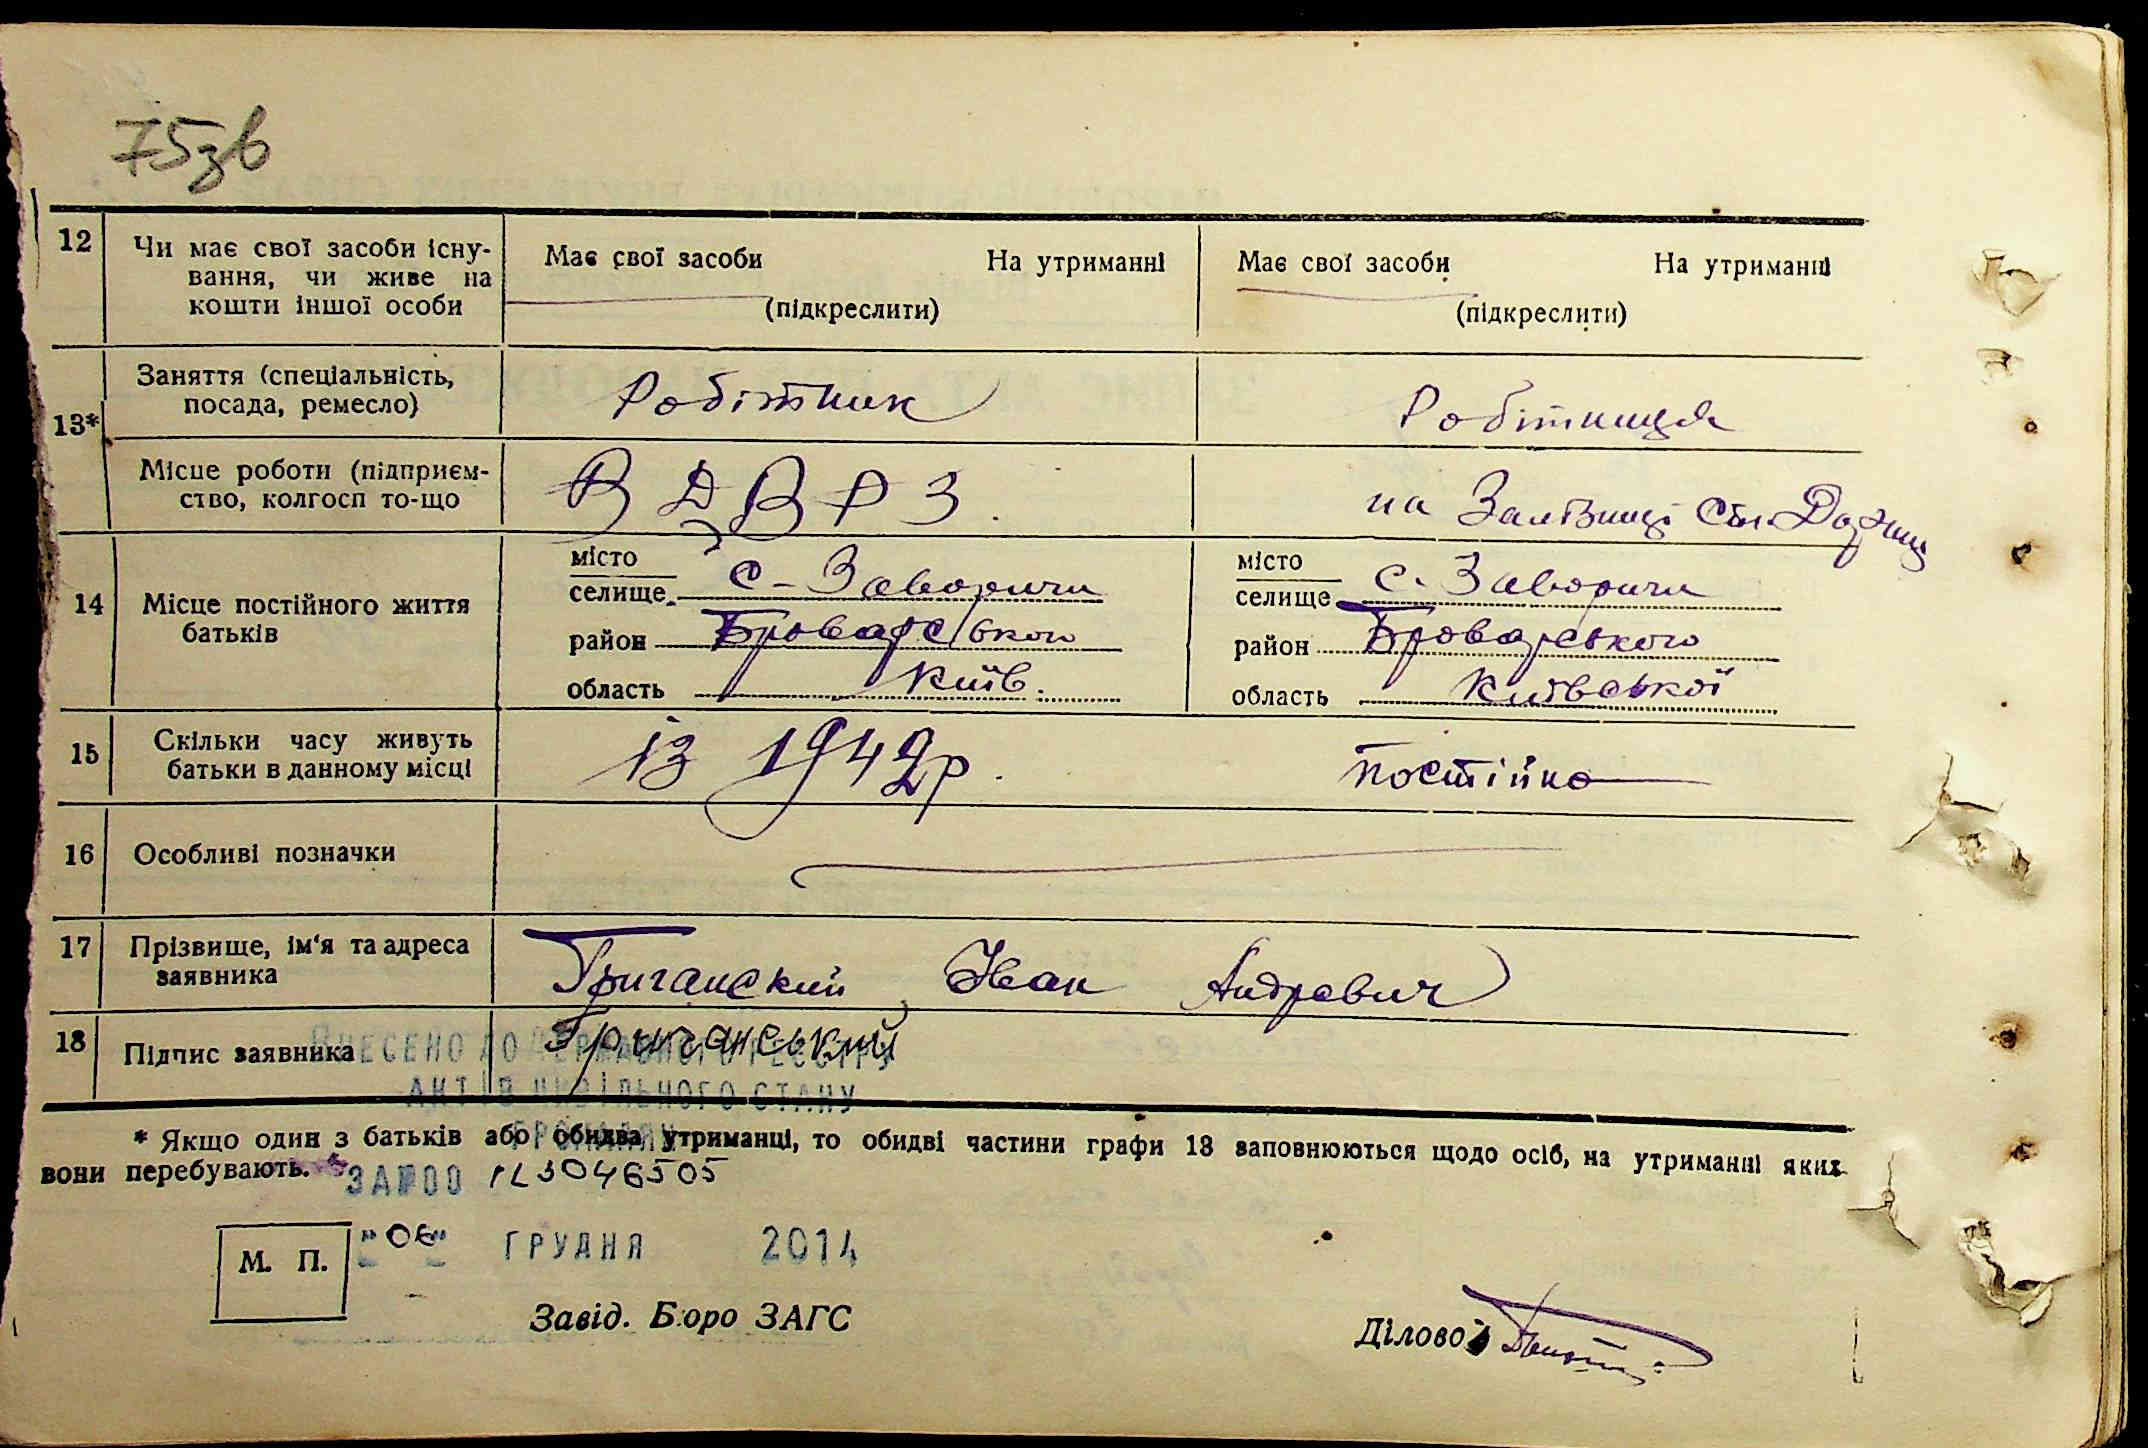 75зв
12 Чи має свої засоби існу-
вання, чи живе на
кошти іншої особи
Має свої засоби На утриманні
(підкреслити)
Має свої засоби На утриманні
(підкреслити)
13*
Заняття (спеціальність,
посада, ремесло)
Робітник
Робітниця
Місце роботи (підприєм-
ство, колгосп то-що
В Д В Р З.
на Залізниці Ст. Дарниц
14 Місце постійного життя
батьків
місто
селище с-Заворичи
район Броварського
область Київ.
місто
селище с. Заворичи
район Броварського
область Київської
15 Скільки часу живуть
батьки в данному місці
із 1942р.
постійно
16 Особливі позначки
17 Прізвище, ім'я та адреса
заявника
Григанский Іван Андревич
18 Підпис заявника
Григанський
ВНЕСЕНО ДО ДЕРЖАВНОГО РЕЄСТРУ
АКТІВ ЦИВІЛЬНОГО СТАНУ
ГРОМАДЯН
* Якщо один з батьків або обидва утриманці, то обидві частини графи 13 заповнюються щодо осіб, на утриманні яких
вони перебувають.
ЗА №00 123046505
М. П.
"06" ГРУДНЯ 2014
Завід. Бюро ЗАГС
Діловод